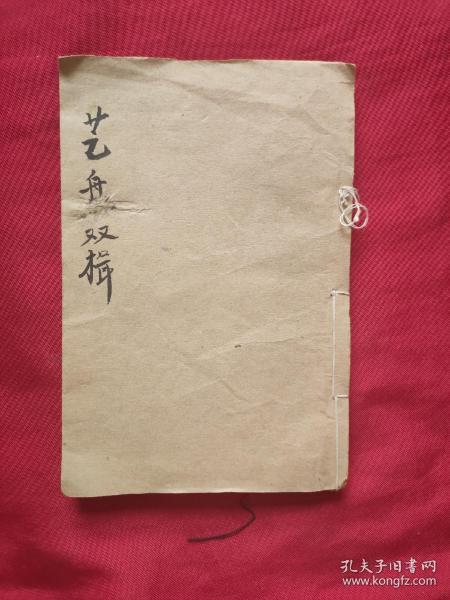 艺舟双楫
孔夫子旧书网
www.kongfz.com